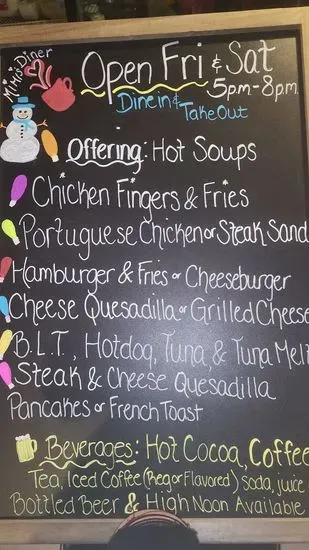 Mimi's Diner
Open Fri & Sat
5pm-8pm
Dine in &
Take Out
Offering: Hot Soups
Chicken Fingers & Fries
Portuguese Chicken or Steak Sand
Hamburger & Fries or Cheeseburger
Cheese Quesadilla or Grilled Cheese
B.L.T., Hotdog, Tuna & Tuna Melt
Steak & Cheese Quesadilla
Pancakes or French Toast
Beverages: Hot Cocoa, Coffee
Tea, Iced Coffee (Reg or Flavored) Soda, juice
Bottled Beer & High Noon Available